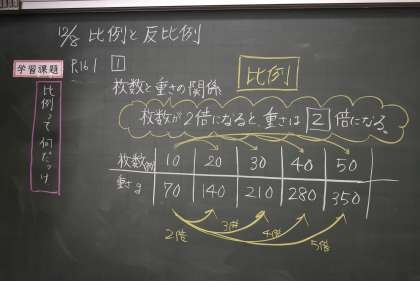 12/8 比例と反比例
学習課題
比例って何だっけ
P.161 1
枚数と重さの関係
比例
枚数が2倍になると、重さは2倍になる。
枚数(枚) 10 20 30 40 50
重さg 70 140 210 280 350
2倍 3倍 4倍 5倍